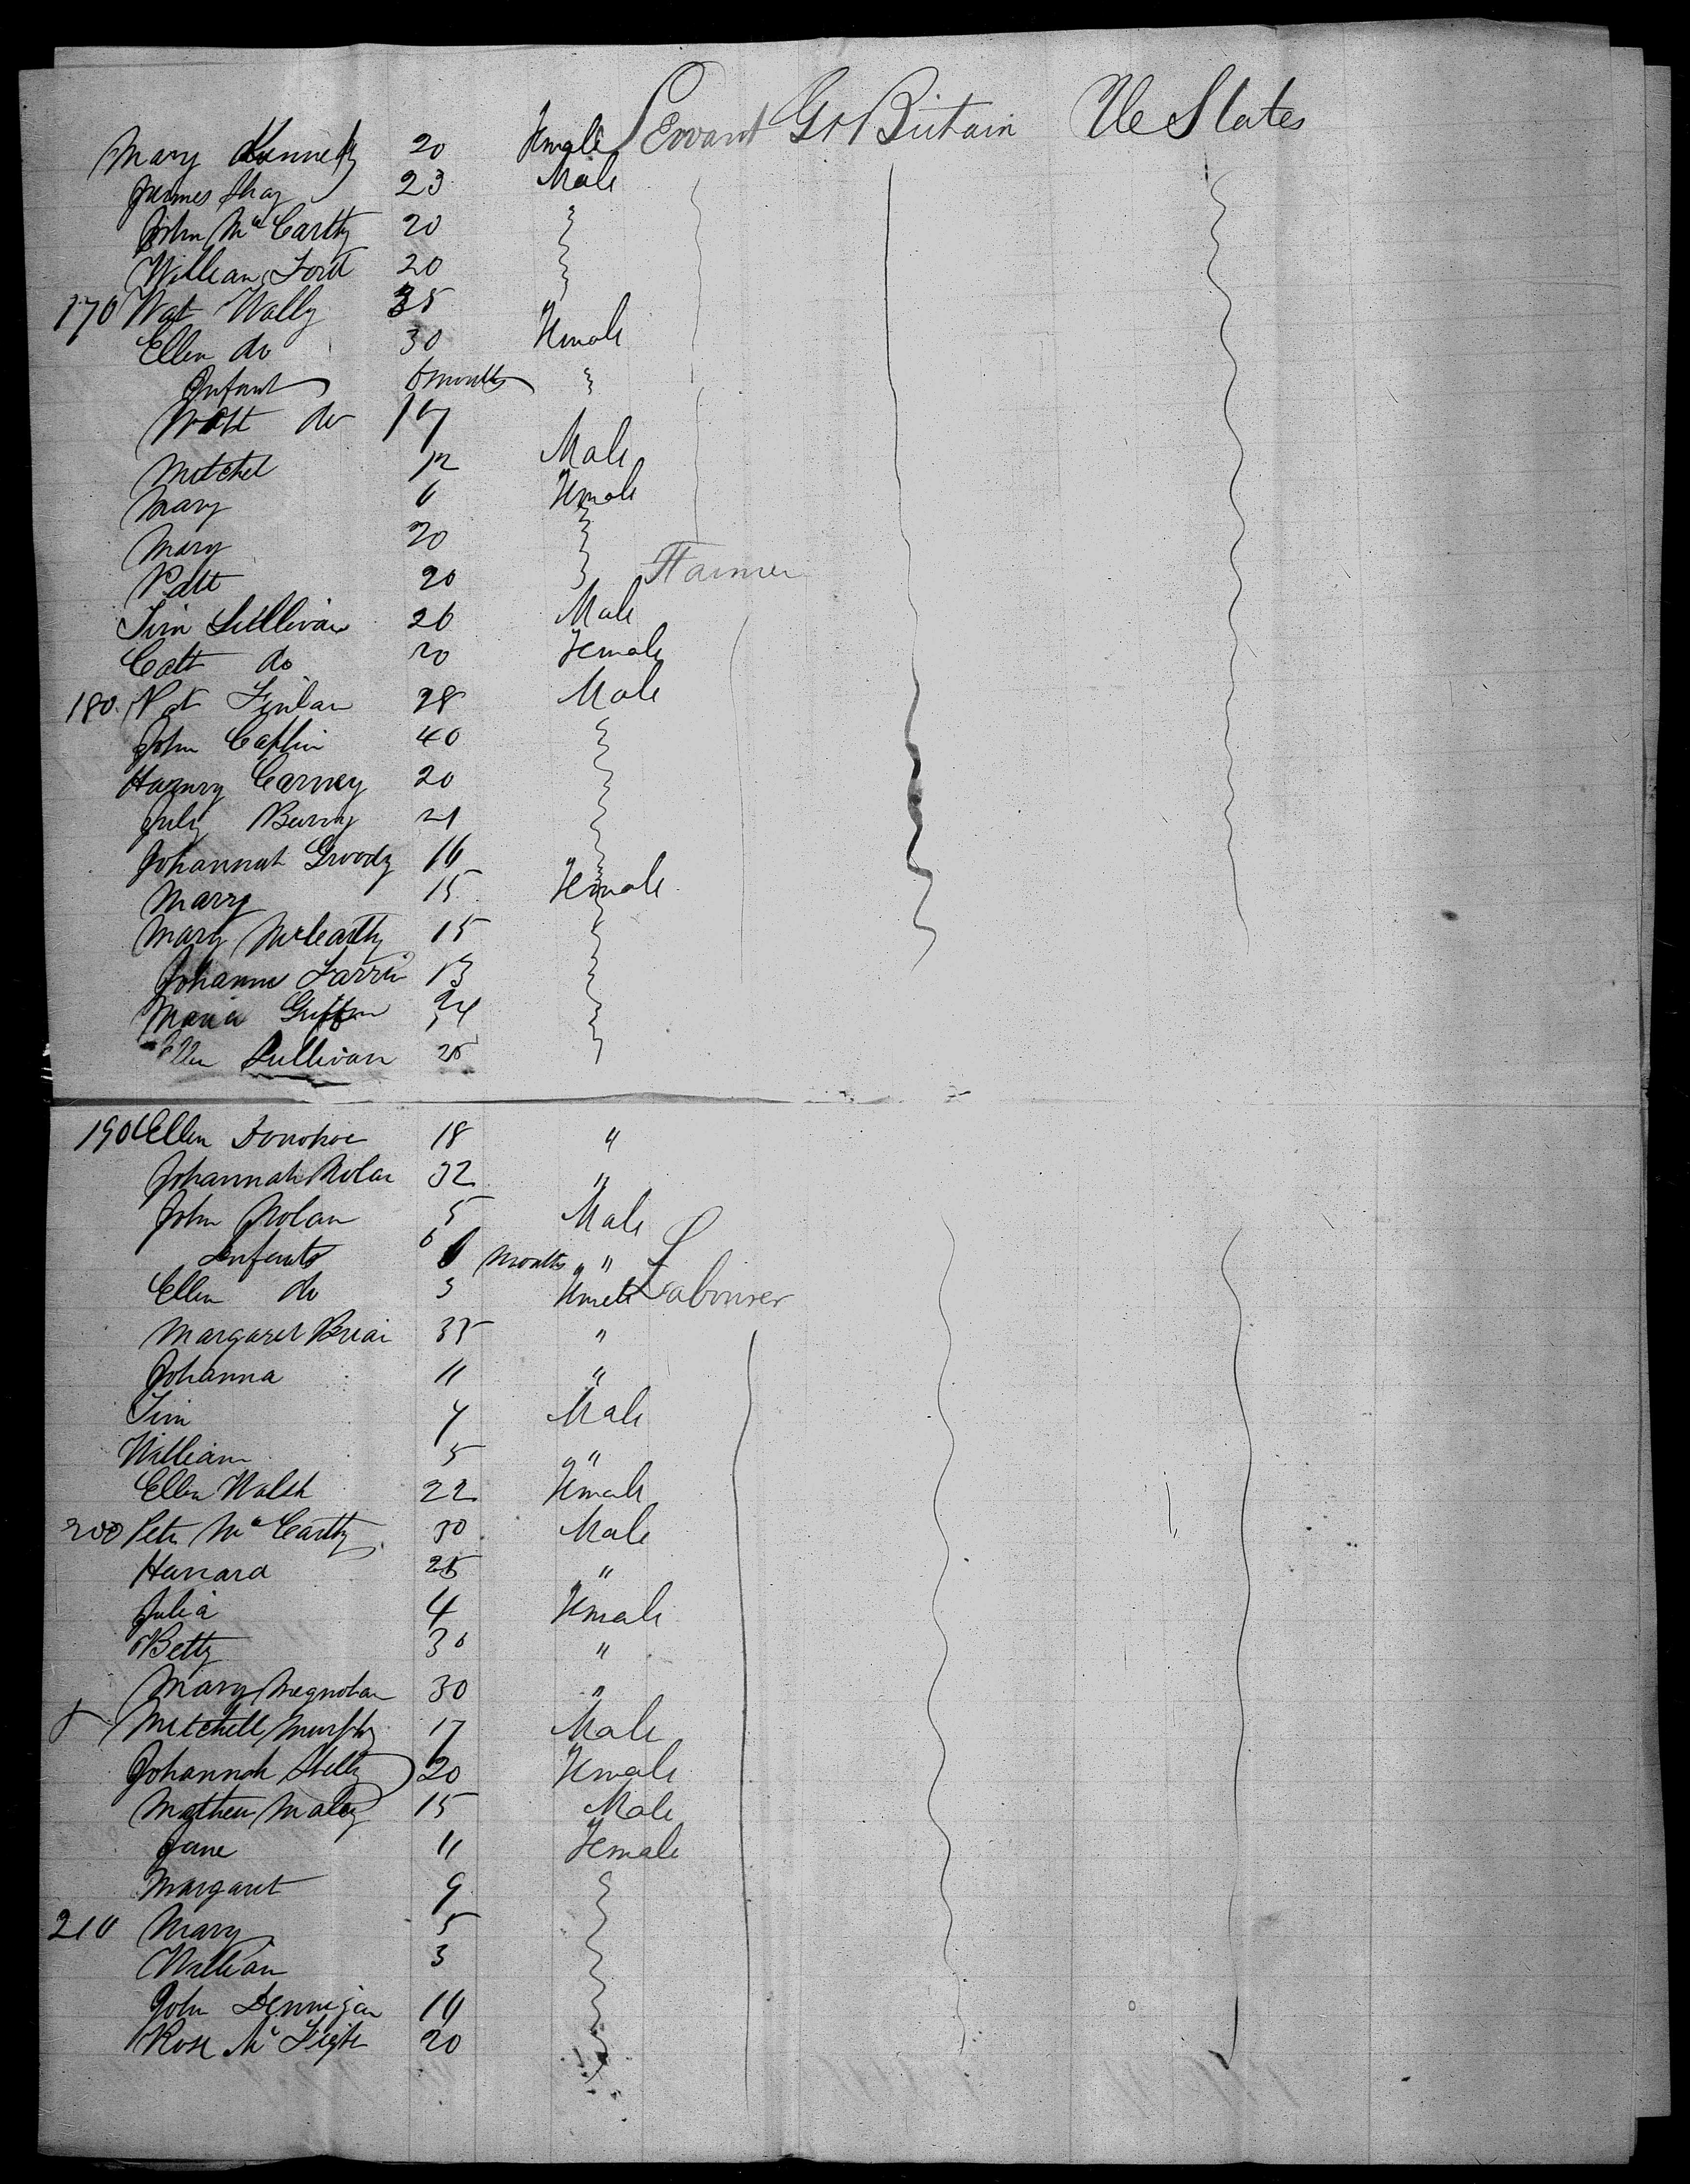 Mary Kennedy 20 Female Servant Gt Britain Ue States
James Shay 23 Male
John Mc Carthy 20
William Ford 20
170 Wat Wally 35
Ellen do 30 Female
Infant 6 months
Watt do 17
Mitchel 12 Male
Mary 6 Female
Mary 20
Patt 20 Farmer
Tim Sullivan 26 Male
Catt do 20 Female
180 Pat Finlan 28 Male
John Caflin 40
Hannry Carney 20
July 21
Johannah Groody 16
Marry 15 Female
Mary McCarthy 15
Johanna Farrin 13
Maria Griffin 24
Ellen Sullivan 25
190 Ellen Donohoe 18 "
Johannah Nolan 32 "
John Nolan 5 Male
Infants 6 months "
Ellen do 3 Female Labourer
Margaret Brian 35 "
Johanna 11 "
Tim 7 Male
William 5 "
Ellen Walsh 22 Female
200 Petr Mc Carthy 30 Male
Hanara 25 "
Julia 4 Female
Betty 30 "
Mary 30 "
Mitchell Murphy 17 Male
Johannah 20 Female
Mathew Maley 15 Male
Jane 11 Female
Margaret 9
210 Mary 5
William 3
John Dennigan 16
Rose Mc Tigh 20